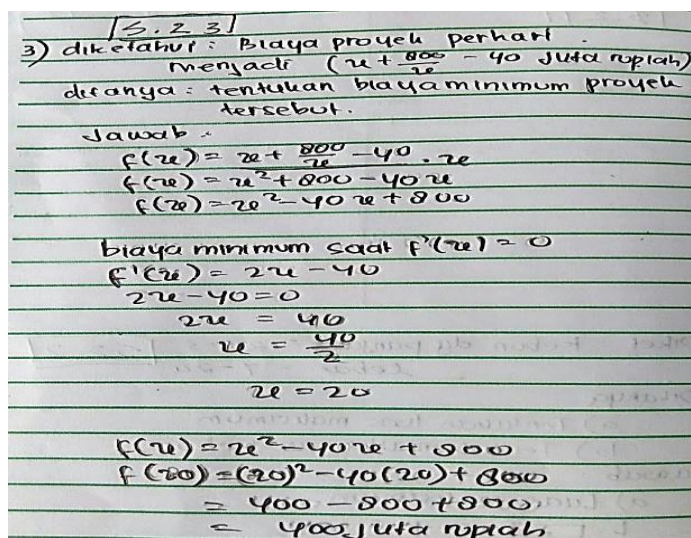 [S.2 3]
3) diketahui : Biaya proyek perhari
menjadi (x + 800/x - 40 Juta rupiah)
ditanya : tentukan biaya minimum proyek
tersebut.
Jawab :
f(x) = x + 800/x - 40 . x
f(x) = x² + 800 - 40 x
f(x) = x² - 40 x + 800
biaya minimum saat f'(x) = 0
f'(x) = 2x - 40
2x - 40 = 0
2x = 40
x = 40/2
x = 20
f(x) = x² - 40x + 800
f(20) = (20)² - 40(20) + 800
= 400 - 800 + 800
= 400 Juta rupiah